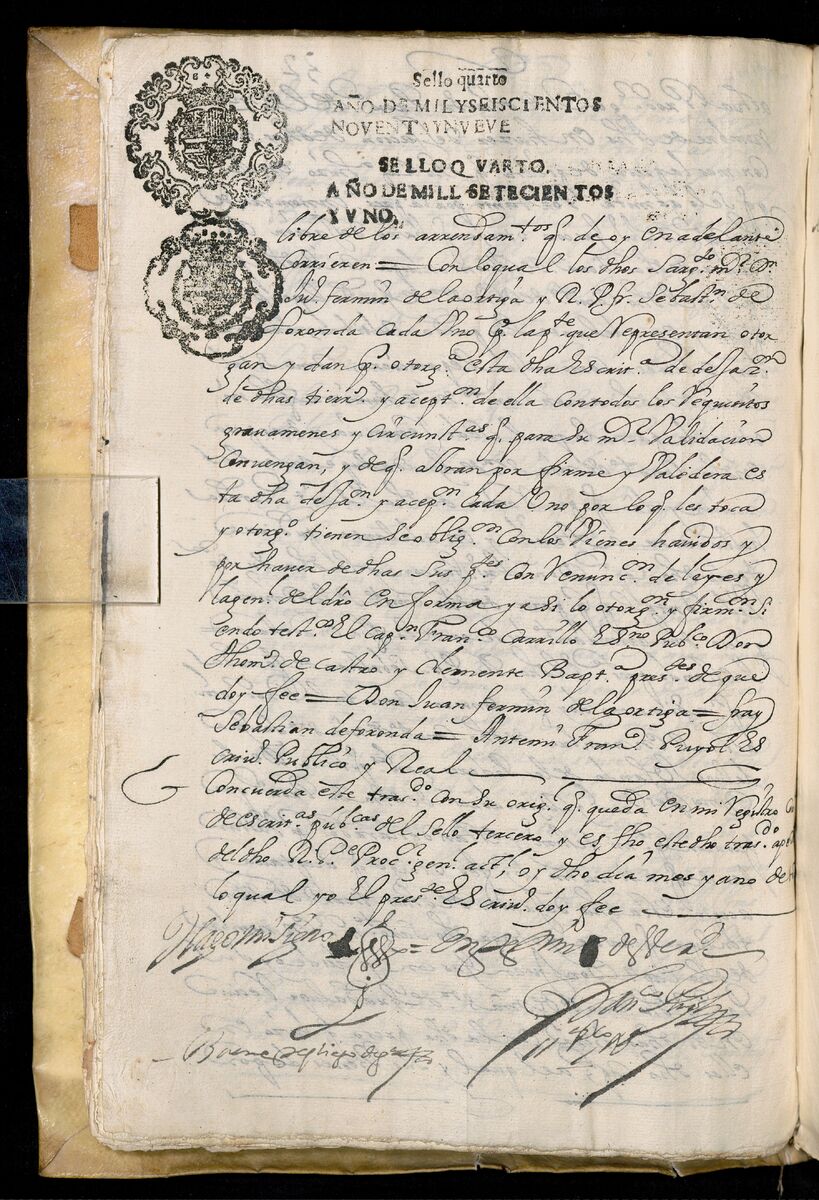 Sello quarto
AÑO DE MIL Y SEISCIENTOS
NOVENTA Y NVEVE
SELLO QVARTO,
AÑO DE MILL SETECIENTOS
Y VNO,
libre de los arrendam.tos q. de oy en adelante
Corrieren = Con loqual los dhos Sarg.to m.r Dn
Ju.o fermin de la ortiga y R. P. fr. Sebast.n de
foronda Cada Uno p.r la p.te que Representan otor
gan y dan p.r otorg.a esta dha Escrit.a de dessa.n
de dhas tierr.s y acept.n de ella Con todos los Requisitos
gravamenes y Circunst.as q. para su m.r Validacion
Convengan, y de q. abran por firme y Valedera es
ta dha dessa.n y acep.n Cada Uno por lo q. les toca
y otorg.o tienen se oblig.n Con los Vienes havidos y
por haver de dhas sus p.tes Con Renunc.on de leyes y
la gen.l del dro en forma y asi lo otorg.n y firm.n si
endo test.os El Cap.n Fran.co Carrillo Es.no Pub.co Don
thom.s de Castro y Clemente Bapt.a pres.es de que
doy fee = Don Juan fermin de la ortiga = fray
Sebastian de foronda = Antemi Fran.co Puyol Es
criv.o Publico y Real
Concuerda este tras.do Con su orig.l q. queda en mi Registro
de escrit.as pub.cas del Sello tercero y es fho este dho tras.do
del dho R. P.e Proc.r gen.l act.l oy dho dia mes y año de
lo qual yo El pres.te Escriv.o doy fee
Hago mi signo = de Verd